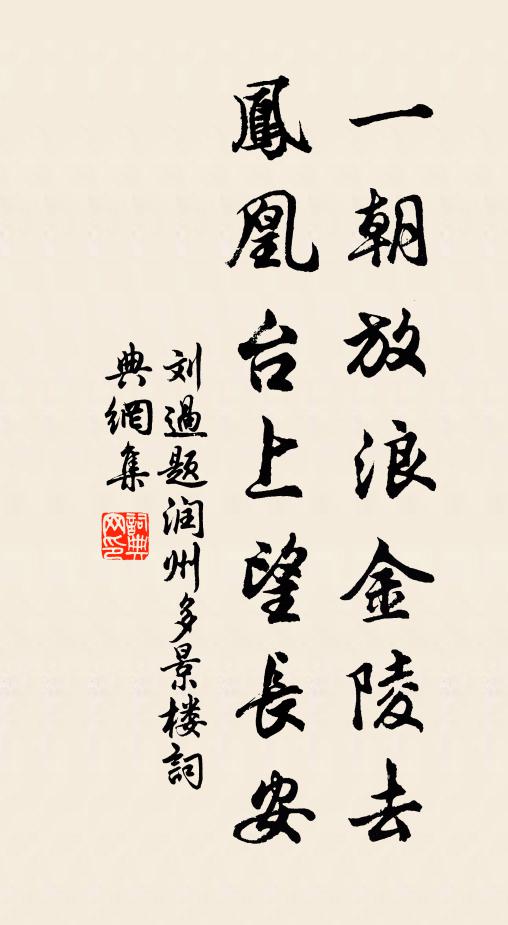 一朝放浪金陵去
鳳凰台上望長安
刘過题润州多景楼詞
典網集
詞典网印